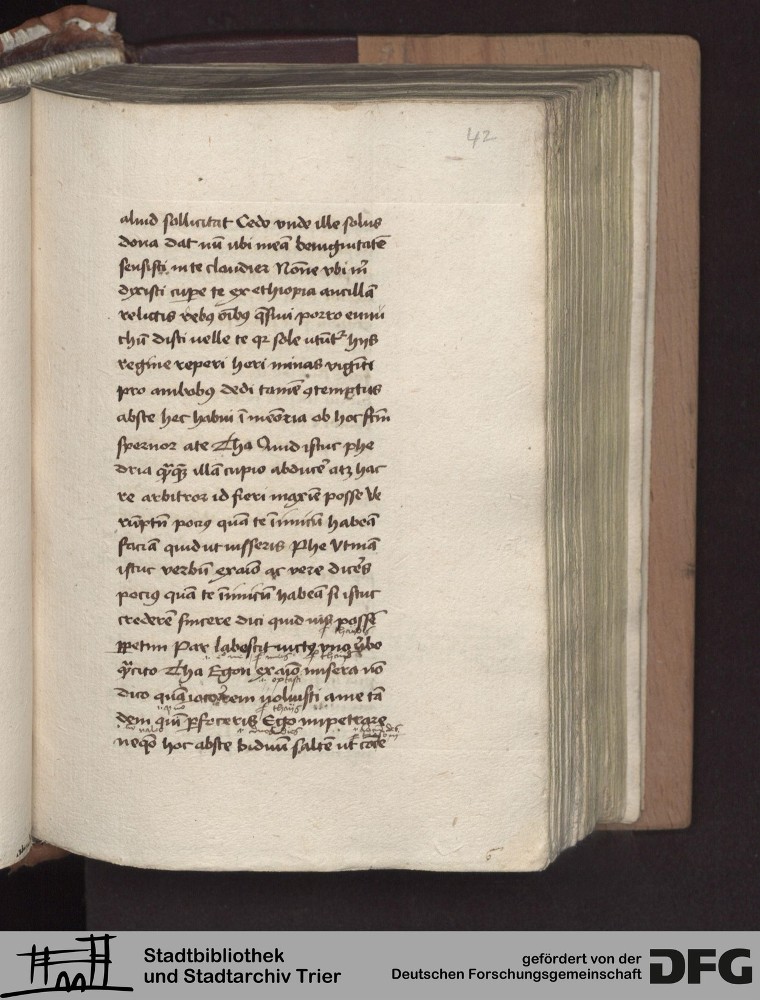 42
aliud sollicitat Cedo unde ille solus
dona dat nū ubi meā benignitatē
sensisti in te claudier Nōne ubi m̄
dixisti cupe te ex ethiopia ancillā
relictis rebꝰ ōībꝰ q̄siui porro eunu
chū dixti uelle te qꝛ sole utūtᷣ hijs
regine reperi heri minas viginti
pro ambobꝰ dedi tamē ꝯtemptus
abste hec habui ī memoria ob hoc
spernor ate Tha Quid istuc phe
dria illā cupio abducē atqꝫ hac
re arbitror id fieri maxīe posse Ve
rūptn̄ pociꝰ quā te īīmicū habeā
faciā quid ut iusseris Phe Vtinā
istuc verbū ex aīo ac vere dicēs
pociꝰ quā te īīmicū habeā si istuc
crederē sincere dici quid uis possē
ꝑpetim Par labescit victꝰ uno ūbo
q̄ cito Tha Egon ex aīo misera nō
dico quā ioco rem uoluisti a me tā
dem quī ꝑfeceris Ego impetrare
nequeo hoc abste biduū saltē ut
Stadtbibliothek
und Stadtarchiv Trier
gefördert von der
Deutschen Forschungsgemeinschaft
DFG